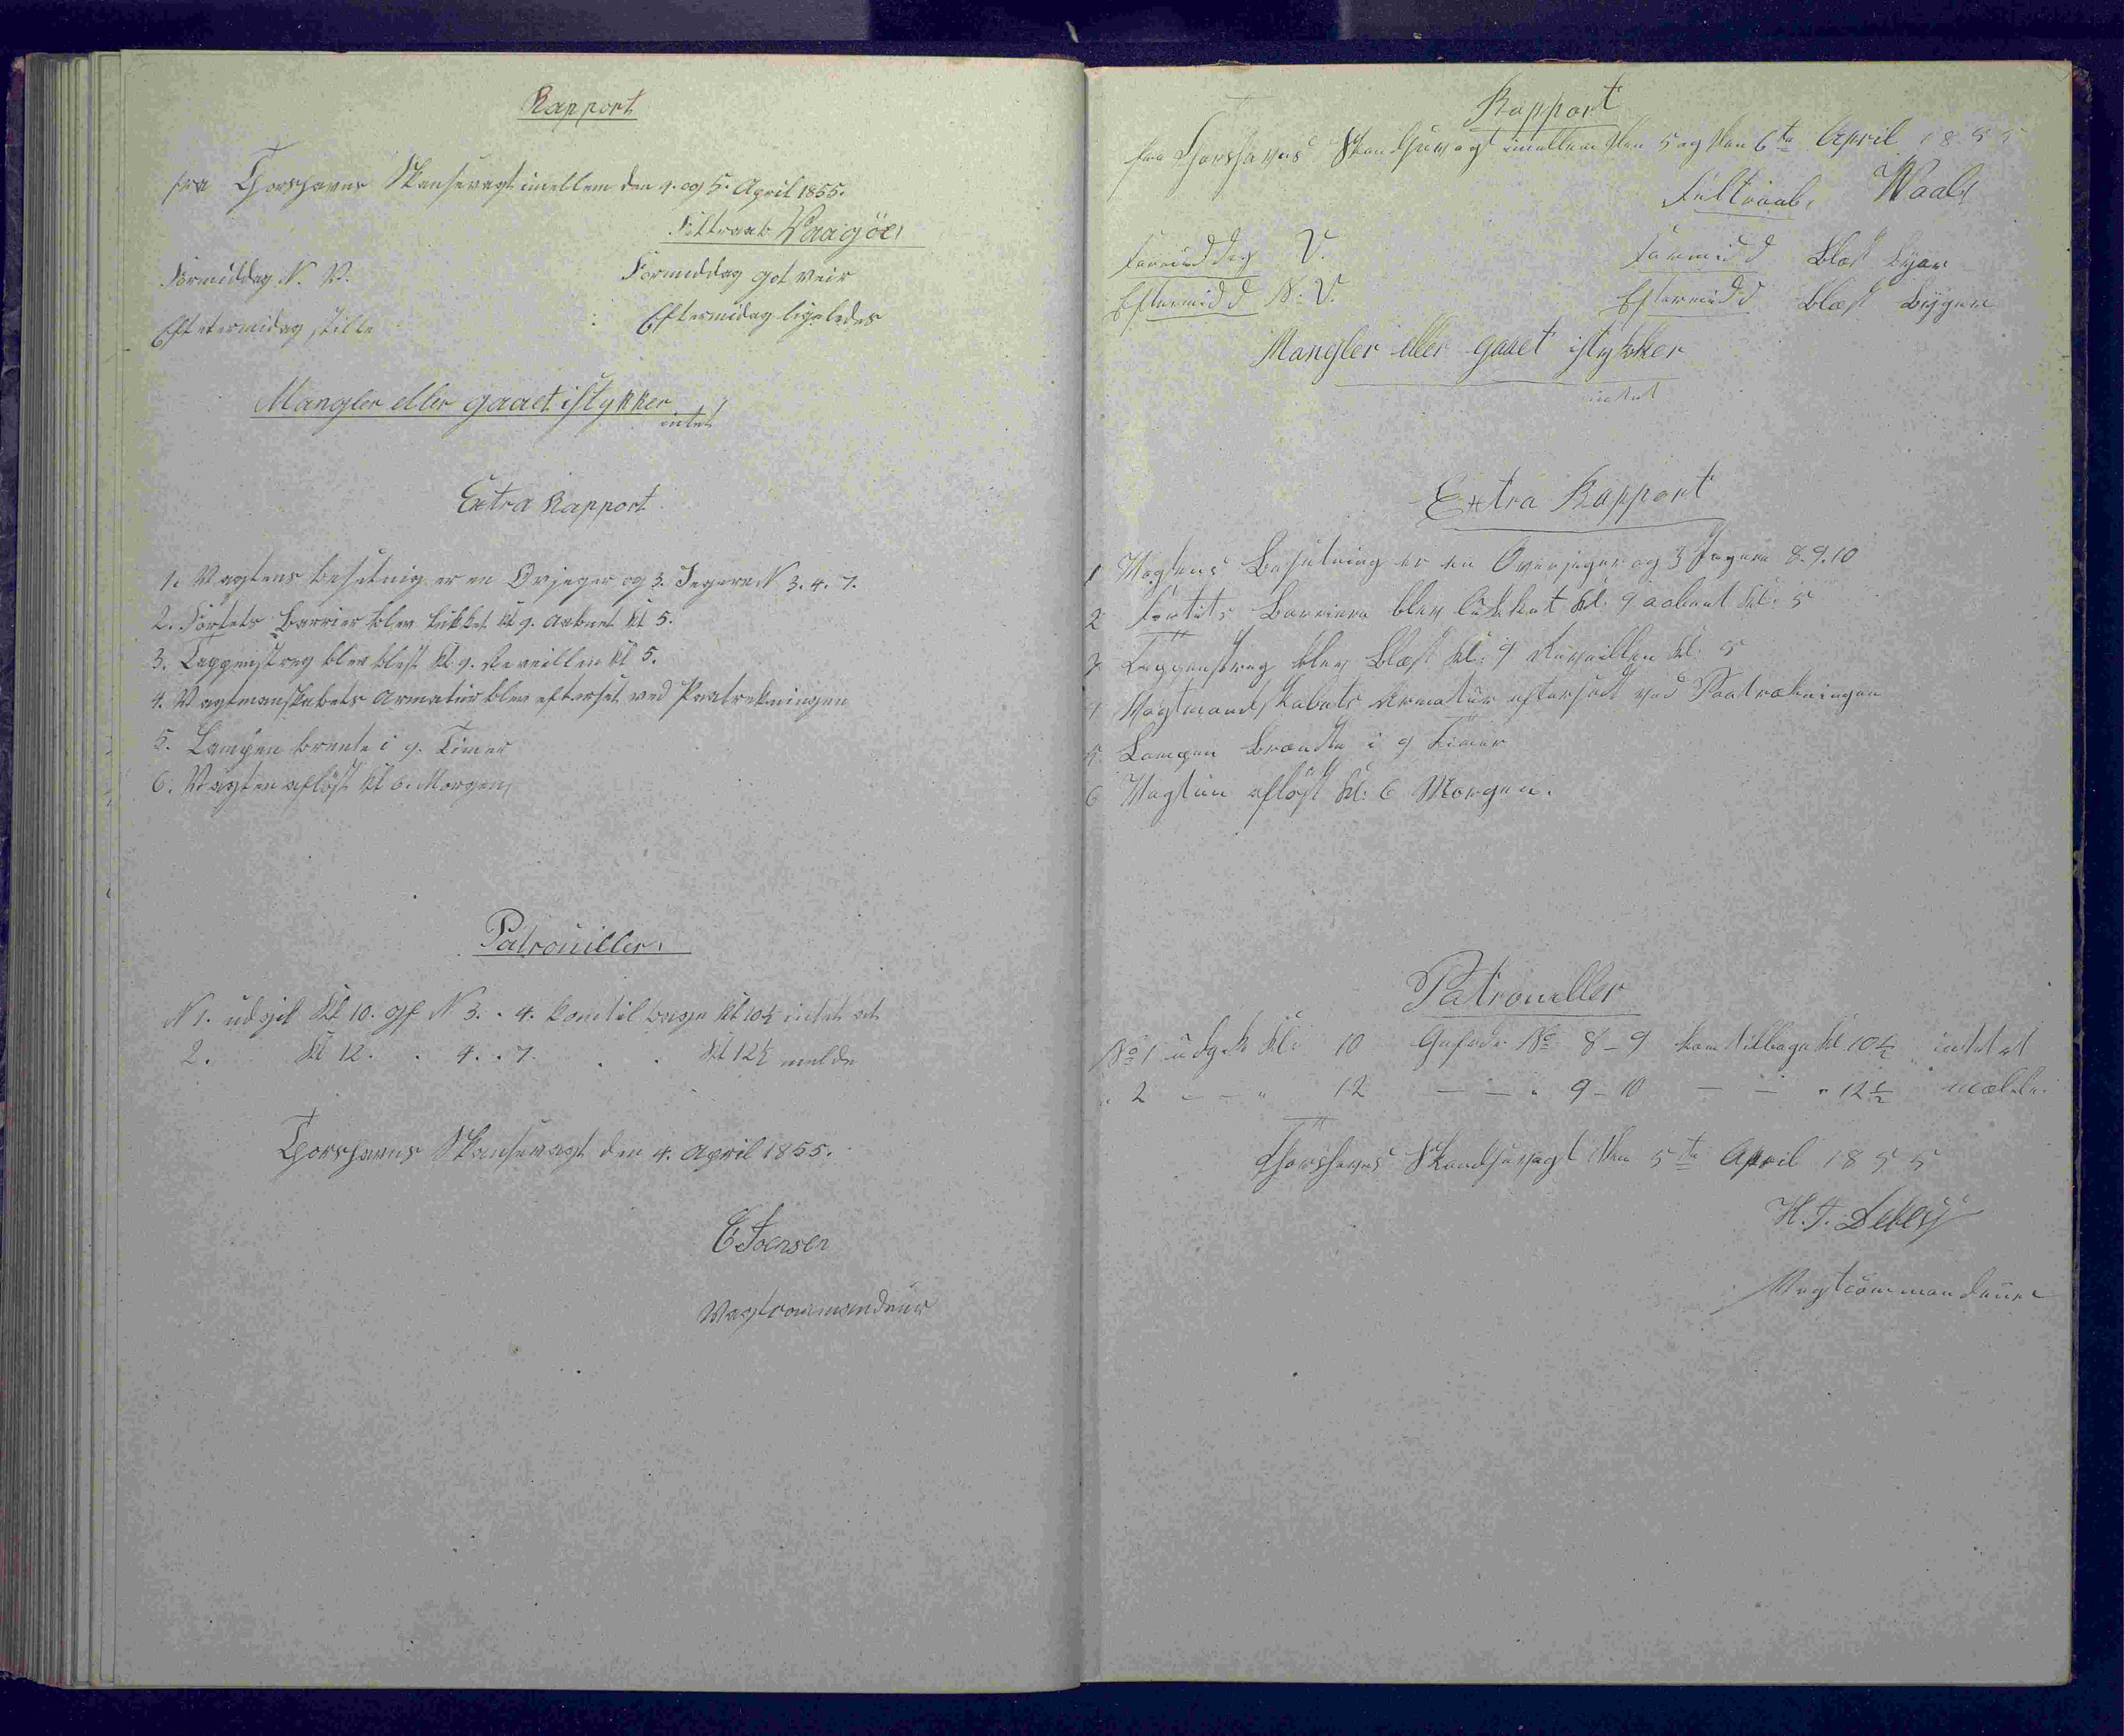 Rapport
fra Thorshavns Skansevagt imellem den 4. og 5. April 1855.
Feltraab Vaagöe,
Formiddag N. V. Formiddag got veir
Eftetermidag stille : Eftermidag ligeledes
Mangler eller gaaet istykker
intet
Extra Rapport
1. Vagtens besetnig er en Ovrjeger og 3. Jegere N 3. 4. 7.
2. Fortets Barrier blev lukket kl 9. aabnet kl 5.
3. Tappenstreg blev blest kl. 9. Reveillen kl 5.
4. Vagtmanskabets Armatur blev efterset ved Paatrekningen
5. Lampen brente i 9. Timer
6. Vagten aflöst kl 6. Morgen,
Patrouiller.
N 1. udgik Kl 10. gf N 3. . 4. kom tilbage kl 10½ intet at
2. Kl 12. . 4. . 7. . . kl 12½ melde
Thorshavns Skansevagt den 4. April 1855.
E Joensen
Vagtcommandeur
Rapport
fra Thorshavns Skandsevagt imellem den 5 og den 6te April 1855
Feltraab, Waals
Formiddag V. Formidd Blæst Byer
Eftermidd N: V. Eftermidd Blæst Byger
Mangler eller gaaet istykker
intet
Extra Rapport
1 Vagtens Besætning er en Overjeger og 3 Jegere 8. 9. 10
2 Fortets Barriere blev lukket kl: 9 aabnet kl: 5
3 Tappenstreg blev Blæst kl: 9 Reveillen kl: 5
4 Vagtmandskabets Armatur efterseet ved Paatrækningen
5. Lampen Brændte i 9 Timer
6 Vagten aflöst kl: 6 Morgen.
Patrouller
No 1 udgik kl: 10 Gefrede No 8 - 9 kom tilbage kl. 10½ intet at
" 2 - - " 12 - - " 9 - 10 - - " 12½ mælde.
Thorshavns Skandsevagt den 5te April 1855
H. J. Debes
Vagtcommandeur